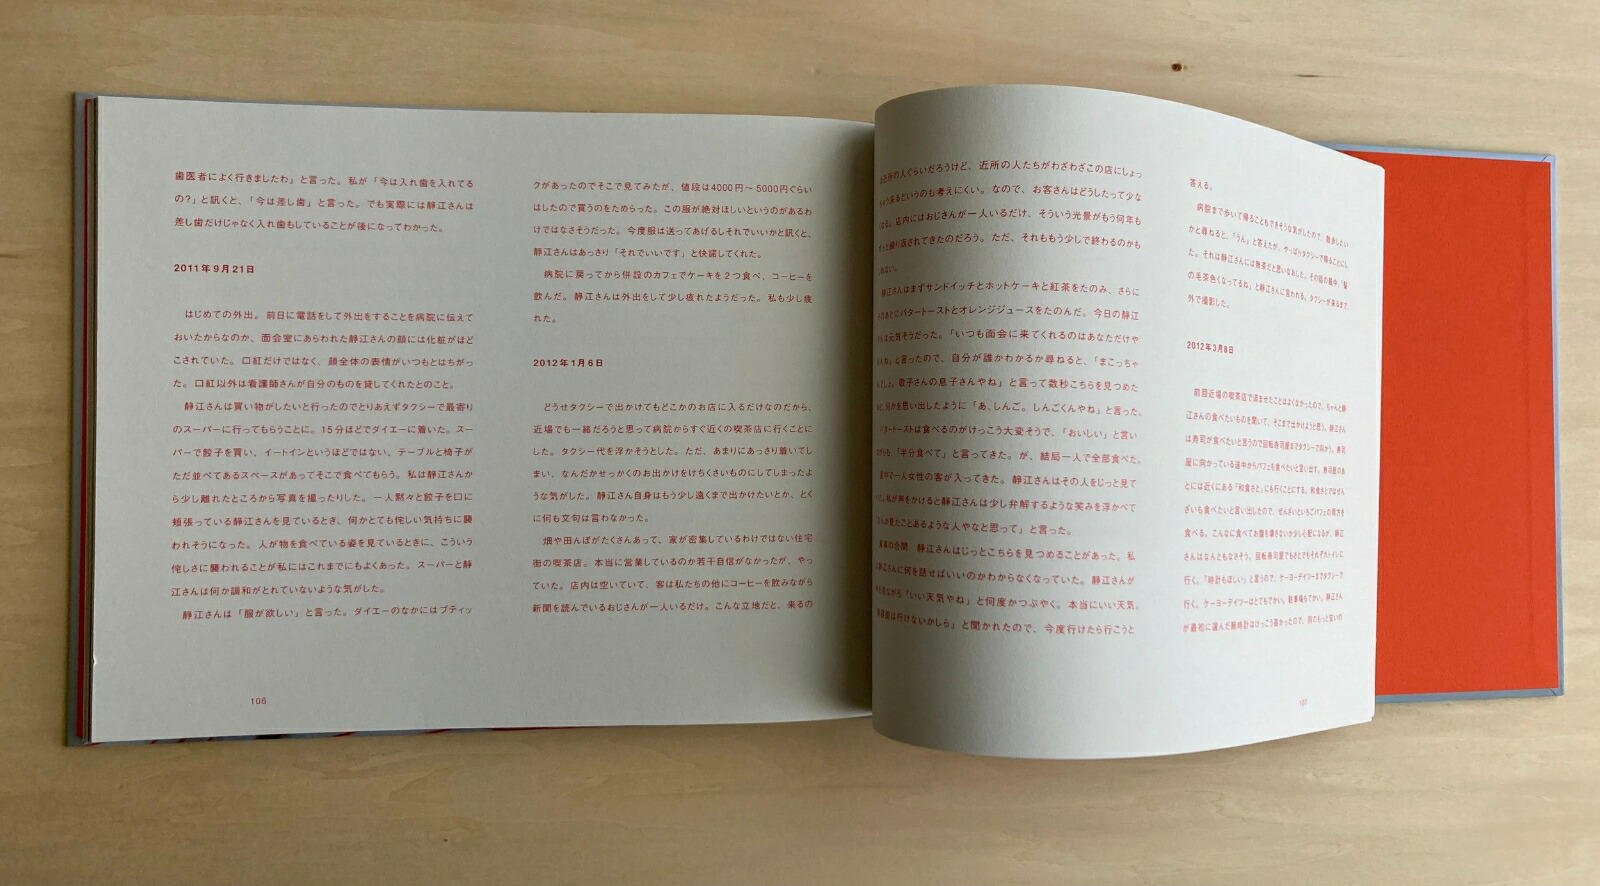 歯医者によく行きましたわ」と言った。私が「今は入れ歯を入れてる
の?」と訊くと、「今は差し歯」と言った。でも実際には静江さんは
差し歯だけじゃなく入れ歯もしていることが後になってわかった。
2011年9月21日
はじめての外出。前日に電話をして外出をすることを病院に伝えて
おいたからなのか、面会室にあらわれた静江さんの顔には化粧がほど
こされていた。口紅だけではなく、顔全体の表情がいつもとはちがっ
た。口紅以外は看護師さんが自分のものを貸してくれたとのこと。
静江さんは買い物がしたいと行ったのでとりあえずタクシーで最寄り
のスーパーに行ってもらうことに。15分ほどでダイエーに着いた。スー
パーで餃子を買い、イートインというほどではない、テーブルと椅子が
ただ並べてあるスペースがあってそこで食べてもらう。私は静江さんか
ら少し離れたところから写真を撮ったりした。一人黙々と餃子を口に
頬張っている静江さんを見ているとき、何かとても侘しい気持ちに襲
われそうになった。人が物を食べている姿を見ているときに、こういう
侘しさに襲われることが私にはこれまでにもよくあった。スーパーと静
江さんは何か調和がとれていないような気がした。
静江さんは「服が欲しい」と言った。ダイエーのなかにはブティッ
クがあったのでそこで見てみたが、値段は4000円〜5000円ぐらい
はしたので買うのをためらった。この服が絶対ほしいというのがあるわ
けではなさそうだった。今度服は送ってあげるしそれでいいかと訊くと、
静江さんはあっさり「それでいいです」と快諾してくれた。
病院に戻ってから併設のカフェでケーキを2つ食べ、コーヒーを
飲んだ。静江さんは外出をして少し疲れたようだった。私も少し疲
れた。
2012年1月6日
どうせタクシーで出かけてもどこかのお店に入るだけなのだから、
近場でも一緒だろうと思って病院からすぐ近くの喫茶店に行くことに
した。タクシー代を浮かそうとした。ただ、あまりにあっさり着いてし
まい、なんだかせっかくのお出かけをけちくさいものにしてしまったよ
うな気がした。静江さん自身はもう少し遠くまで出かけたいとか、とく
に何も文句は言わなかった。
畑や田んぼがたくさんあって、家が密集しているわけではない住宅
街の喫茶店。本当に営業しているのか若干自信がなかったが、やっ
ていた。店内は空いていて、客は私たちの他にコーヒーを飲みながら
新聞を読んでいるおじさんが一人いるだけ。こんな立地だと、来るの
106
近所の人ぐらいだろうけど、近所の人たちがわざわざこの店にしょっ
ちゅう来るというのも考えにくい。なので、お客さんはどうしたって少な
くなる。店内にはおじさんが一人いるだけ、そういう光景がもう何年も
繰り返されてきたのだろう。ただ、それももう少しで終わるのかも
しれない。
静江さんはまずサンドイッチとホットケーキと紅茶をたのみ、さらに
そのあとにバタートーストとオレンジジュースをたのんだ。今日の静江
さんは元気そうだった。「いつも面会に来てくれるのはあなただけや
もんね」と言ったので、自分が誰かわかるか尋ねると、「まこっちゃ
んでしょ。敬子さんの息子さんやね」と言って数秒こちらを見つめた
何かを思い出したように「あ、しんご。しんごくんやね」と言った。
バタートーストは食べるのがけっこう大変そうで、「おいしい」と言い
ながらも、「半分食べて」と言ってきた。が、結局一人で全部食べた。
途中で一人女性の客が入ってきた。静江さんはその人をじっと見て
いた。私が声をかけると静江さんは少し弁解するような笑みを浮かべて
見たことあるような人やなと思って」と言った。
食事の合間、静江さんはじっとこちらを見つめることがあった。私
静江さんに何を話せばいいのかわからなくなっていた。静江さんが
「いい天気やね」と何度かつぶやく。本当にいい天気。
は行けないかしら」と聞かれたので、今度行けたら行こうと
答える。
病院まで歩いて帰ることもできそうな気がしたので、散歩したい
かと尋ねると、「うん」と答えたが、やっぱりタクシーで帰ることにし
た。それは静江さんには無茶だと思いなおした。その話の最中、「髪
の毛茶色くなってるね」と静江さんに言われる。タクシーが来るまで
外で撮影した。
2012年3月8日
前回近場の喫茶店で済ませたことはよくなかったので、ちゃんと静
江さんの食べたいものを聞いて、そこまで出かけようと思う。静江さん
は寿司が食べたいと言うので回転寿司屋までタクシーで向かう。寿司
屋に向かっている途中からパフェを食べたいと言い出す。寿司屋のあ
とには近くにある「和食さと」にも行くことにする。和食さとではぜん
ざいも食べたいと言い出したので、ぜんざいといちごパフェの両方を
食べる。こんなに食べてお腹を壊さないか少し心配になるが、静江
さんはなんともなさそう。回転寿司屋でもさとでもそれぞれトイレに
行く。「時計もほしい」と言うので、ケーヨーデイツーまでタクシーで
行く。ケーヨーデイツーはとてもでかい。駐車場もでかい。静江さん
が最初に選んだ腕時計はけっこう高かったので、別のもっと安いの
107